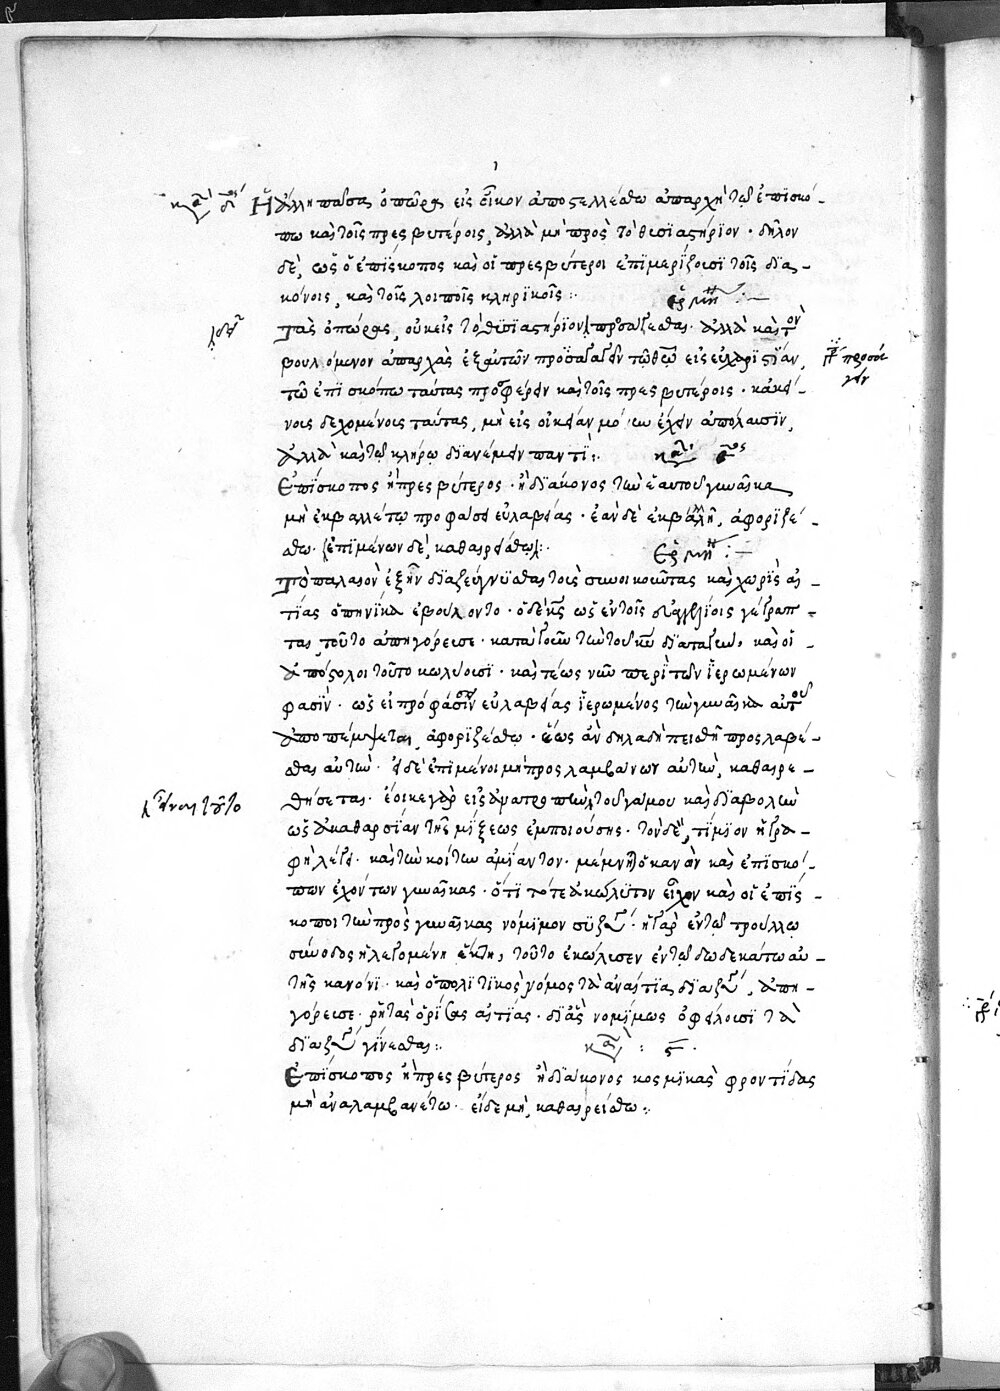 Ἡ ἄλλη πᾶσα ὀπώρα εἰς οἶκον ἀποστελλέσθω ἀπαρχὴ τῷ ἐπισκό-
πω καὶ τοῖς πρεσβυτέροις, ἀλλὰ μὴ πρὸς τὸ θυσιαστήριον · δῆλον
δὲ, ὡς ὁ ἐπίσκοπος καὶ οἱ πρεσβύτεροι ἐπιμερίζουσι τοῖς δια-
κόνοις, καὶ τοῖς λοιποῖς κληρικοῖς :
Τὰς ὀπώρας, οὐκ εἰς τὸ θυσιαστήριον προσάγεσθαι · ἀλλὰ καὶ τὸν
βουλόμενον ἀπαρχὰς ἐξ αὐτῶν προσαγαγεῖν τῷ θεῷ εἰς εὐχαριστίαν,
τῶ ἐπισκόπω ταύτας προσφέρειν καὶ τοῖς πρεσβυτέροις · κἀκεί-
νοις δεχομένοις ταύτας, μὴ εἰς οἰκείαν μόνω ἔχειν ἀπόλαυσιν,
ἀλλὰ καὶ τῷ κλήρῳ διανέμειν παντί :
Ἐπίσκοπος ἢ πρεσβύτερος · ἢ διάκονος τὴν ἑαυτοῦ γυναῖκα
μὴ ἐκβαλλέτω προφάσει εὐλαβείας · ἐὰν δὲ ἐκβάλλῃ, ἀφοριζέ-
σθω · ἐπιμένων δὲ, καθαιρείσθω :
Τὸ παλαιὸν ἐξῆν διαζεύγνυσθαι τοὺς συνοικοῦντας καὶ χωρὶς αἰ-
τίας ὁπηνίκα ἐβούλοντο · ὁ δὲ κύριος ὡς ἐν τοῖς εὐαγγελίοις γέγραπ-
ται τοῦτο ἀπηγόρευσε · κατὰ γοῦν τὴν τοῦ κυρίου διάταξιν, καὶ οἱ
ἀπόστολοι τοῦτο κωλύουσι · καὶ τέως νῦν περὶ τῶν ἱερωμένων
φασὶν · ὡς εἰ πρόφασιν εὐλαβείας ἱερωμένος τὴν γυναῖκα αὐτοῦ
ἀποπέμψεται, ἀφοριζέσθω · ἕως ἂν δηλαδὴ πεισθῆ προσλαβέ-
σθαι αὐτὴν · εἰ δὲ ἐπιμένοι μὴ προσλαμβάνων αὐτὴν, καθαιρε-
θήσεται · ἔοικε γὰρ εἰς ἀνατροπὴν τοῦ γάμου καὶ διαβολὴν
ὡς ἀκαθαρσίαν τῆς μίξεως ἐμποιούσης · τὸν δὲ, τίμιον ἡ γρα-
φὴ λέγει · καὶ τὴν κοίτην ἀμίαντον · μέμνηται ὁ κανὼν καὶ ἐπισκό-
πων ἐχόντων γυναῖκας · ὅτι τότε ἀκώλυτον εἶχον καὶ οἱ ἐπίσ-
κοποι τὴν πρὸς γυναῖκας νόμιμον σύζευξιν · ἡ γὰρ ἐν τῷ τρούλλῳ
σύνοδος ἡ λεγομένη ἕκτη, τοῦτο ἐκώλυσεν ἐν τῷ δωδεκάτω αὐ-
τῆς κανόνι · καὶ ὁ πολιτικὸς νόμος τὰ ἀναίτια διαζύγια, ἀπη-
γόρευσε · ῥητὰς ὁρίσας αἰτίας · δι' ἃς νομίμως ὀφείλουσι τὰ
διαζύγια γίνεσθαι :
Ἐπίσκοπος ἢ πρεσβύτερος ἢ διάκονος κοσμικὰς φροντίδας
μὴ ἀναλαμβανέτω · εἰ δὲ μὴ, καθαιρείσθω :